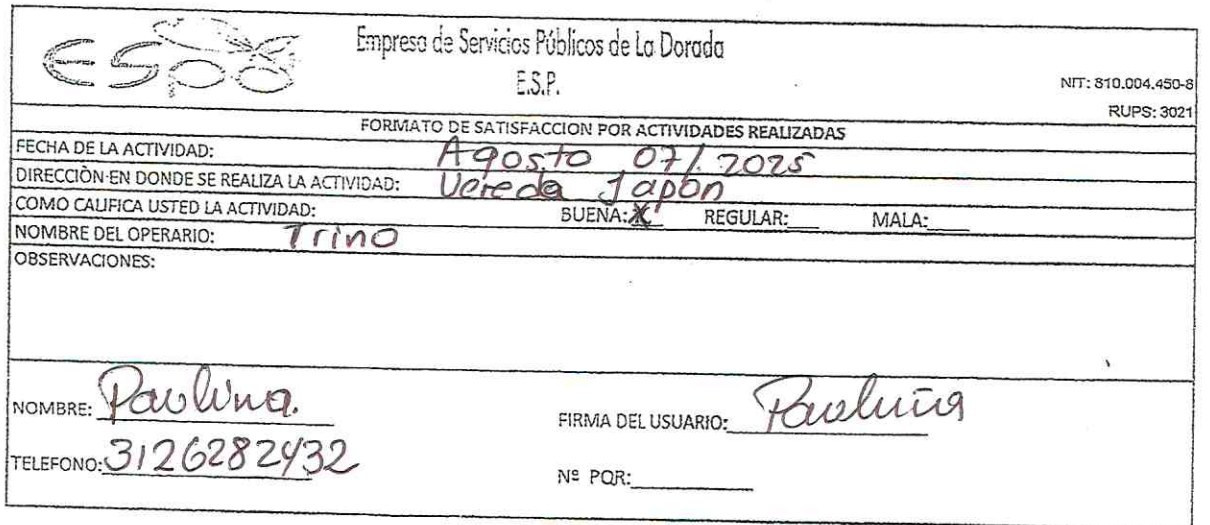 espd
Empresa de Servicios Públicos de La Dorada
E.S.P.
NIT: 810.004.450-8
RUPS: 3021
FORMATO DE SATISFACCION POR ACTIVIDADES REALIZADAS
FECHA DE LA ACTIVIDAD: Agosto 07/2025
DIRECCIÒN EN DONDE SE REALIZA LA ACTIVIDAD: Vereda Japón
COMO CALIFICA USTED LA ACTIVIDAD: BUENA: X REGULAR:____ MALA:____
NOMBRE DEL OPERARIO: Trino
OBSERVACIONES:
NOMBRE: Paulina. FIRMA DEL USUARIO: Paulina
TELEFONO: 3126282432 Nº PQR:____